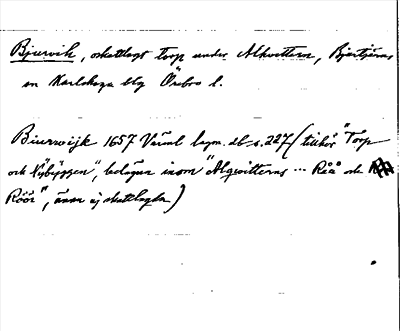 Bjurvik, oskattlagt torp under Alkvettern, Bjurtjärns
sn Karlskoga bg Örebro l.
Biurwijk 1657 Värml lagm. db s. 227 (tillhör "Torp
och Nybyggen", belägna inom "Alqvitterns ... Råå och
Röör", ännu ej skattlagda)